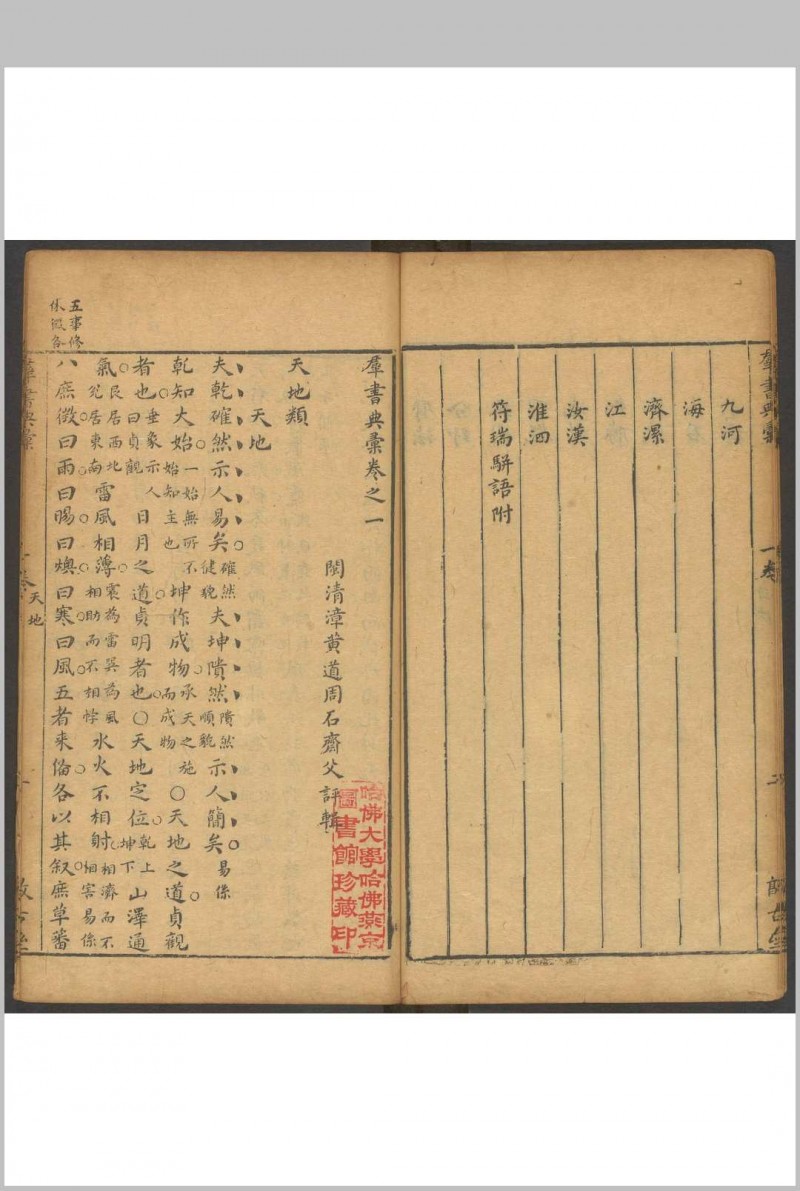 羣書典彙
一卷
九河
海
濟漯
江
汝漢
淮泗
符瑞駢語附
羣書典彙卷之一
閩清漳黃道周石齋父評輯
哈佛大學哈佛燕京
圖書館珍藏印
天地類
天地
夫乾確然示人易矣確然健貌夫坤隤然隤然順貌示人簡矣易係
乾知大始一始無所不始知主也坤作成物承天之施而成物〇天地之道貞觀
者也垂象示人曰貞觀日月之道貞明者也〇天地定位乾上坤下山澤通
氣艮居西北兌居東南雷風相薄震為雷巽為風相助而不相悖水火不相射相濟而不相害易係
八庶徵曰雨曰暘曰燠曰寒曰風五者来俻各以其叙庶草蕃
五事修
休徵各
羣書典彙
天地